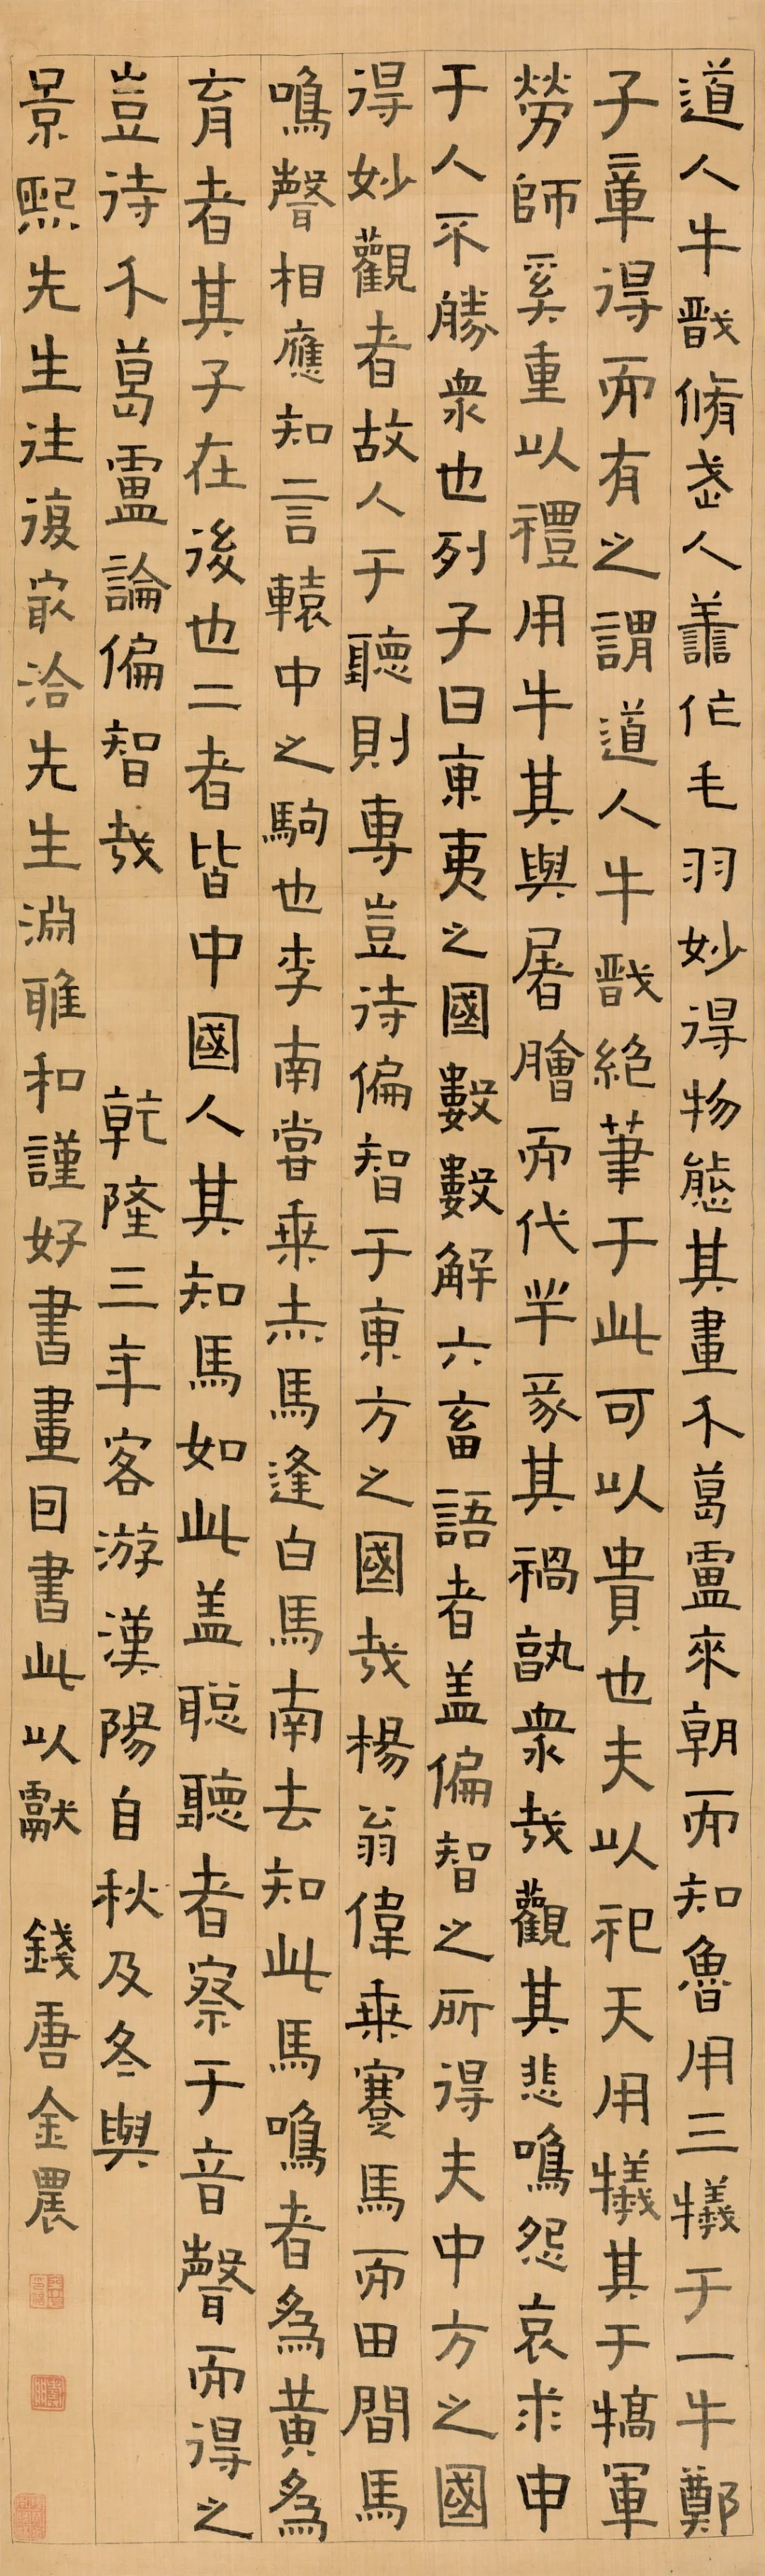 道人牛戩脩武人善作毛羽妙得物態其畫介葛盧來朝而知魯用三犧于一牛鄭
子章得而有之謂道人牛戩絶筆于此可以貴也夫以祀天用犧其于犒軍
勞師奚重以禮用牛其與屠膾而代羊豕其禍孰衆哉觀其悲鳴怨哀求申
于人不勝衆也列子曰東夷之國數數解六畜語者盖偏智之所得夫中方之國
得妙觀者故人于聽則專豈待偏智于東方之國哉楊翁偉乗蹇馬而田間馬
鳴聲相應知言轅中之駒也李南嘗乗赤馬逢白馬南去知此馬鳴者為黄為
育者其子在後也二者皆中國人其知馬如此盖聡聽者察于音聲而得之
豈待介葛盧論偏智哉 乾隆三年客游漢陽自秋及冬與
景熙先生往復㝡洽先生淵雅和謹好書畫因書此以獻 錢唐金農